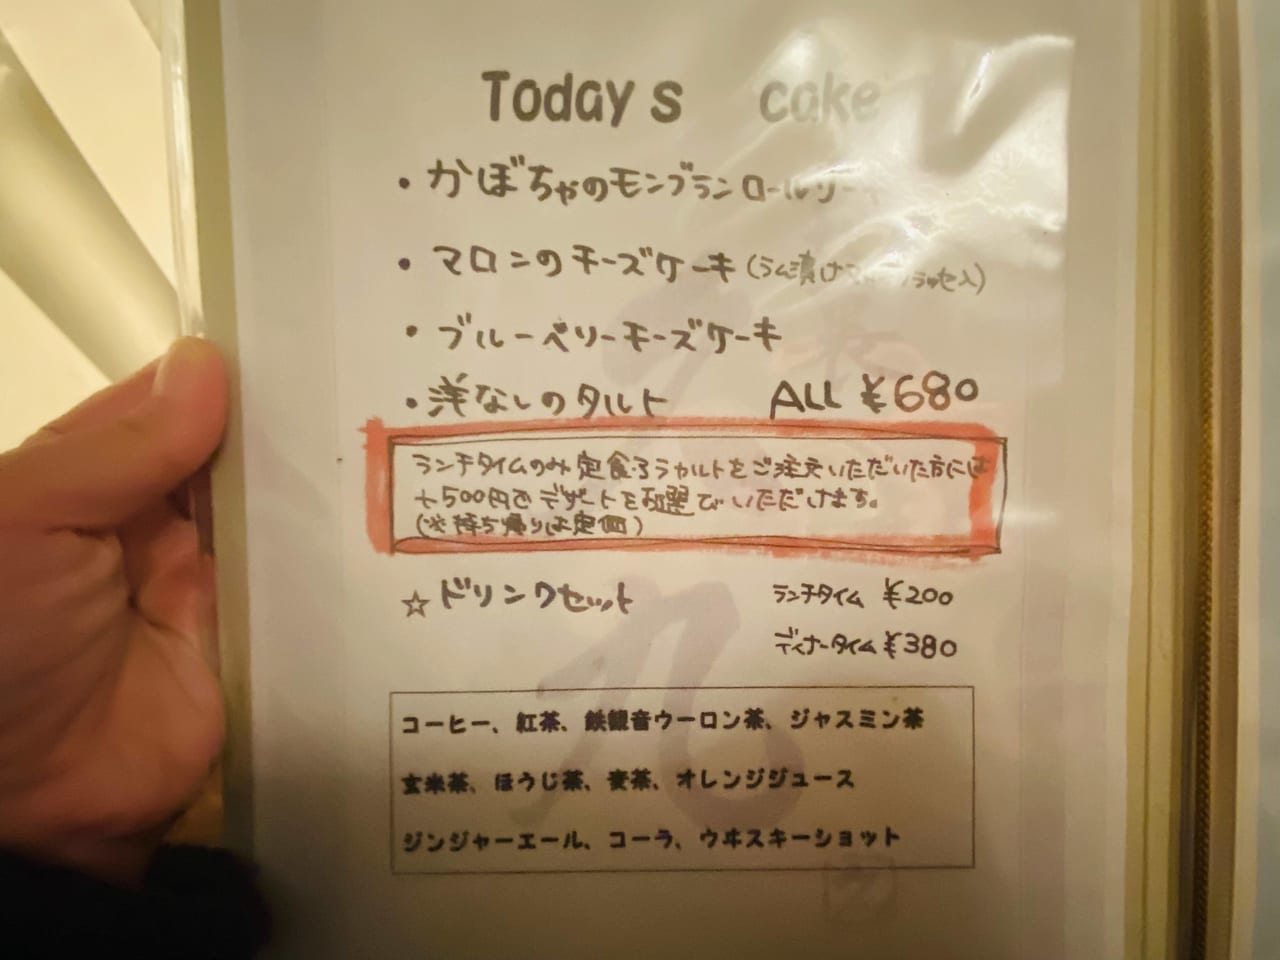 Today s cake
・かぼちゃのモンブランロールケーキ
・マロンのチーズケーキ(ラム漬け
・ブルーベリーチーズケーキ
・洋なしのタルト ALL ¥680
ランチタイムのみ定食・アラカルトをご注文いただいた方には
+500円でデザートをお選びいただけます。
(※持ち帰りは定価)
☆ドリンクセット ランチタイム ¥200
ディナータイム ¥380
コーヒー、紅茶、鉄観音ウーロン茶、ジャスミン茶
玄米茶、ほうじ茶、麦茶、オレンジジュース
ジンジャーエール、コーラ、ウヰスキーショット